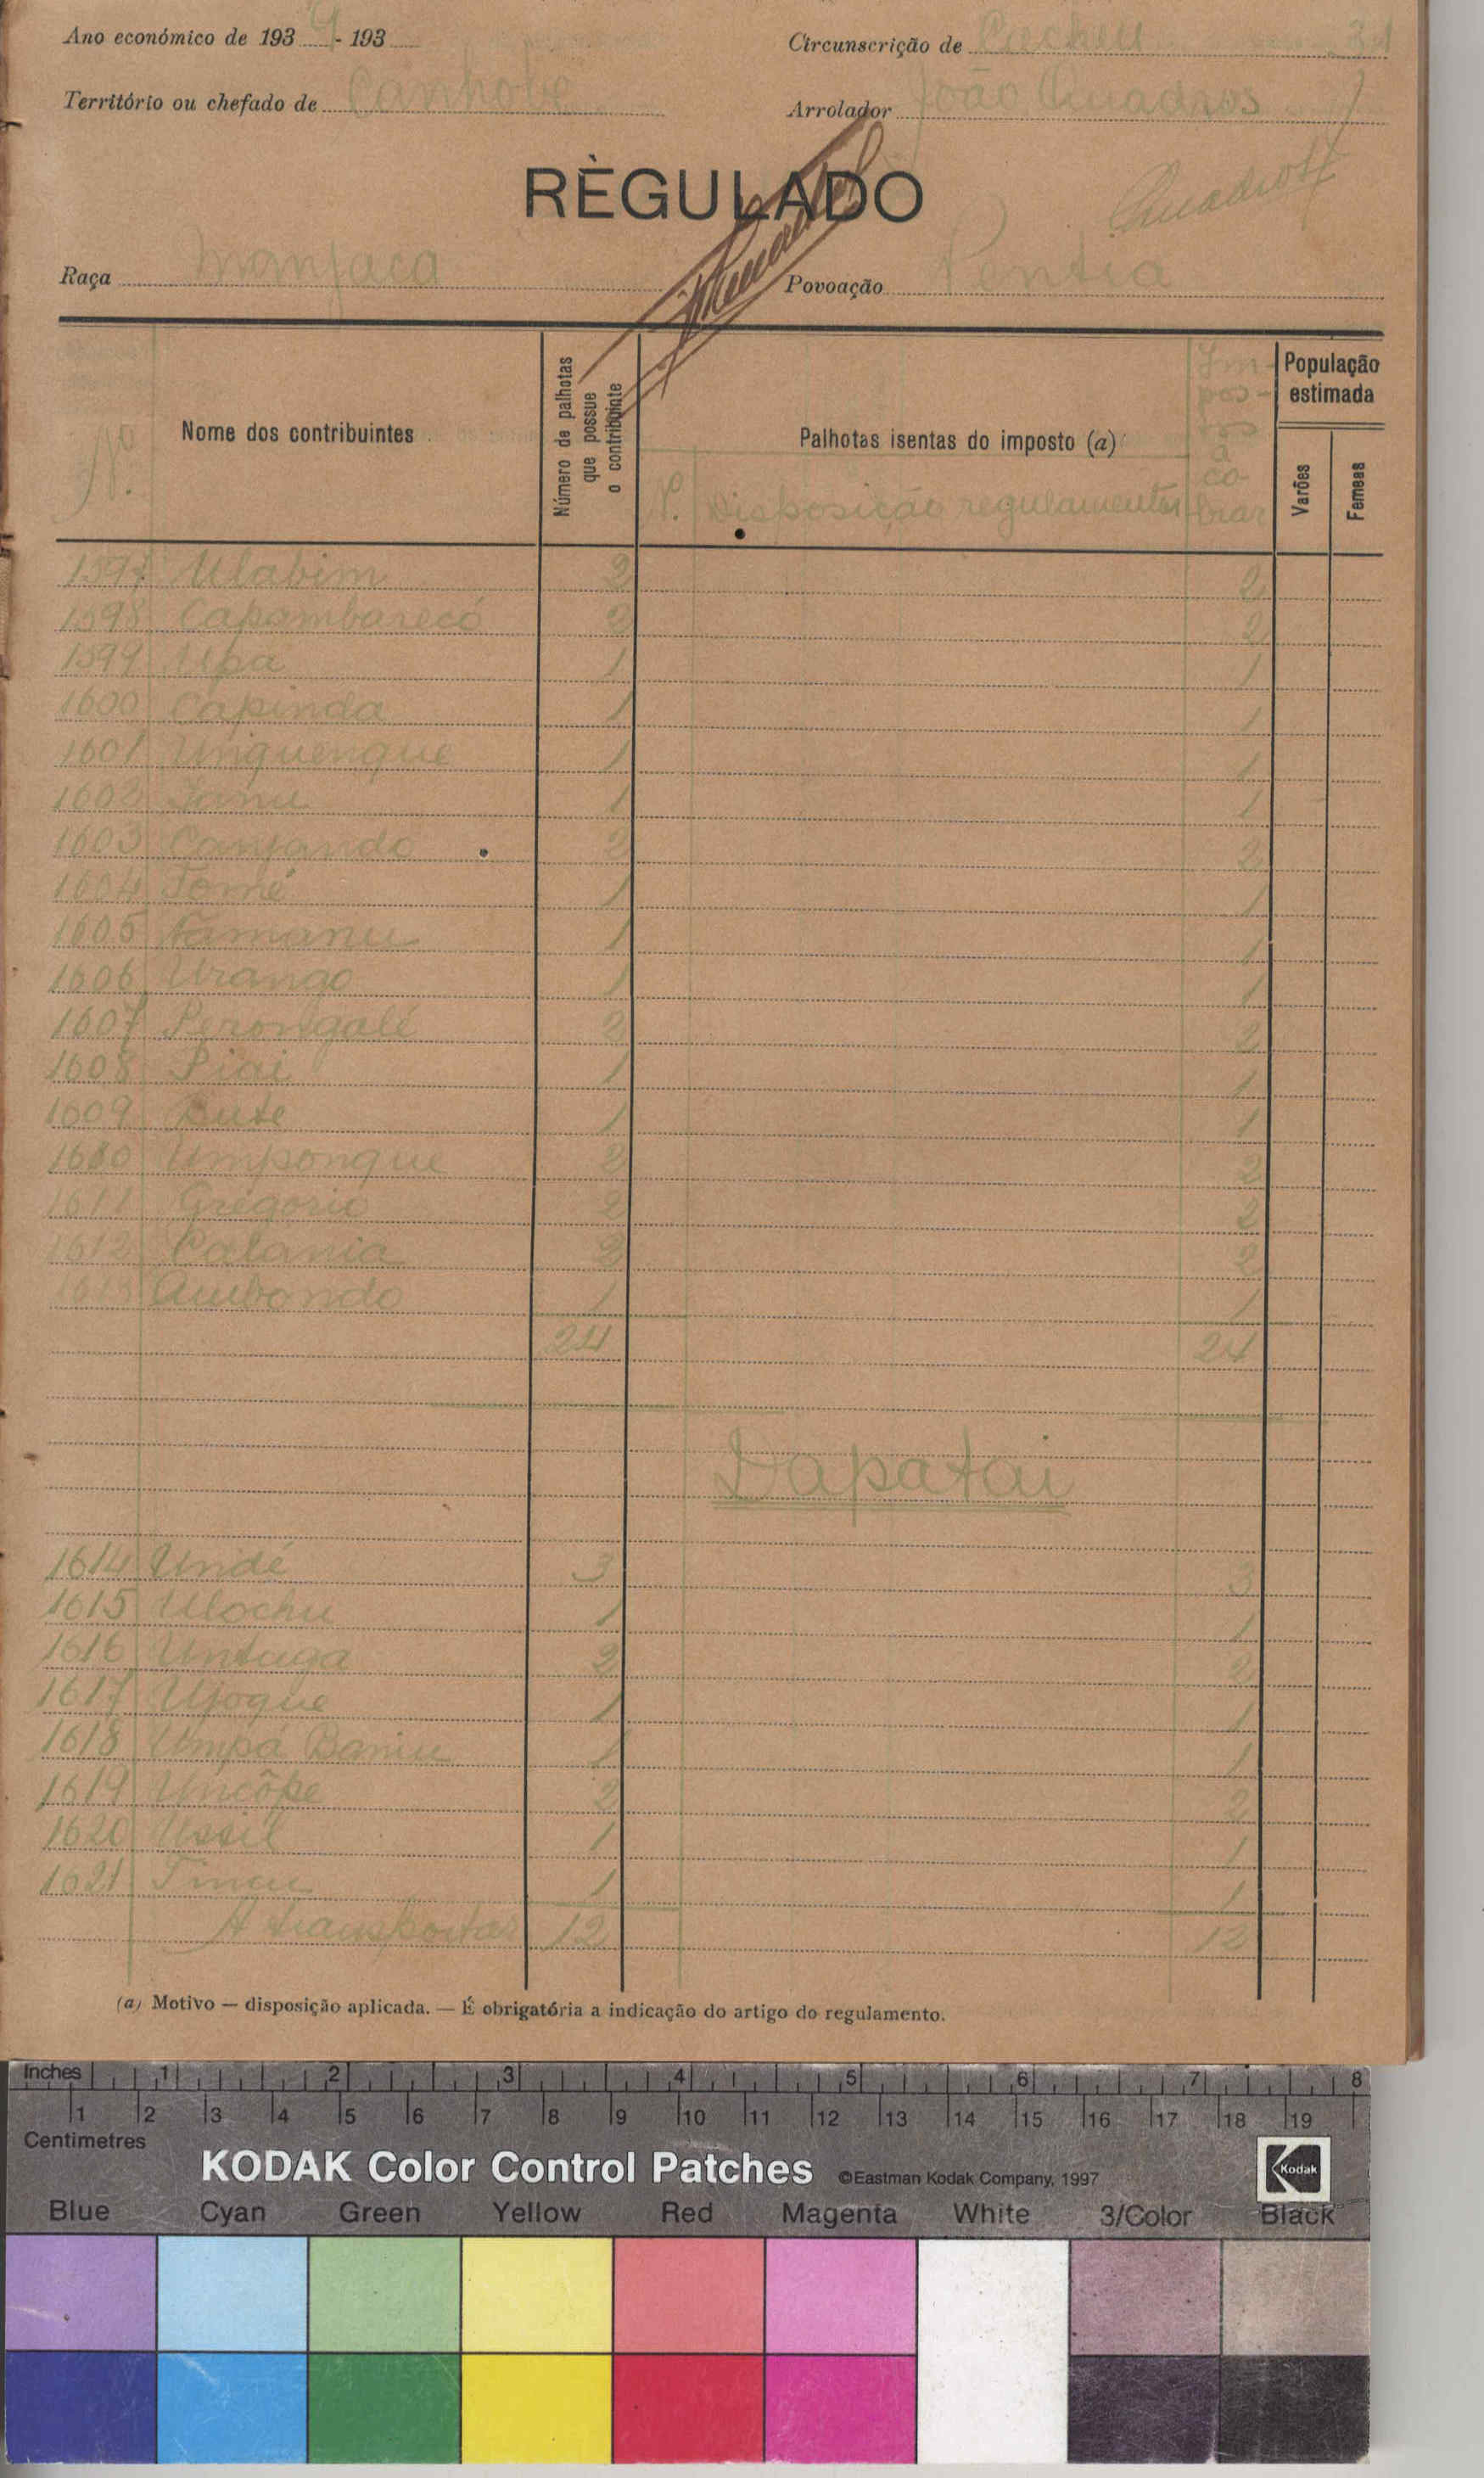 Ano económico de 1939 - 193
Circunscrição de Cacheu 31
Território ou chefado de Canhobe
Arrolador João Quadros
RÈGULADO
Quadros
Raça Manjaca
Povoação Pentia
Nº.
Nome dos contribuintes
Número de palhotas que possue o contribuinte
Palhotas isentas do imposto (a)
Nº. Disposição regulamentar
Im-
pos-
to
a
co-
brar
População estimada
Varões
Femeas
1597 Ulabim 2 2
1598 Capambarecó 2 2
1599 Upa 1 1
1600 Capinda 1 1
1601 Unguengue 1 1
1602 1 1
1603 Canjando 2 2
1604 Tomé 1 1
1605 Namanu 1 1
1606 Urango 1 1
1607 Perongalé 2 2
1608 Piai 1 1
1609 Dute 1 1
1610 Umpongue 2 2
1611 Gregorio 2 2
1612 Calania 2 2
1613 Aubondo 1 1
24 24
Dapatai
1614 Undé 3 3
1615 Ulochu 1 1
1616 Untuga 2 2
1617 Ufoque 1 1
1618 Umpá Baniu 1 1
1619 Uncôpe 2 2
1620 Ussil 1 1
1621 1 1
A transportar 12 12
(a) Motivo — disposição aplicada. — É obrigatória a indicação do artigo do regulamento.
Inches 1 2 3 4 5 6 7 8
1 2 3 4 5 6 7 8 9 10 11 12 13 14 15 16 17 18 19
Centimetres
KODAK Color Control Patches ©Eastman Kodak Company, 1997 Kodak
Blue Cyan Green Yellow Red Magenta White 3/Color Black